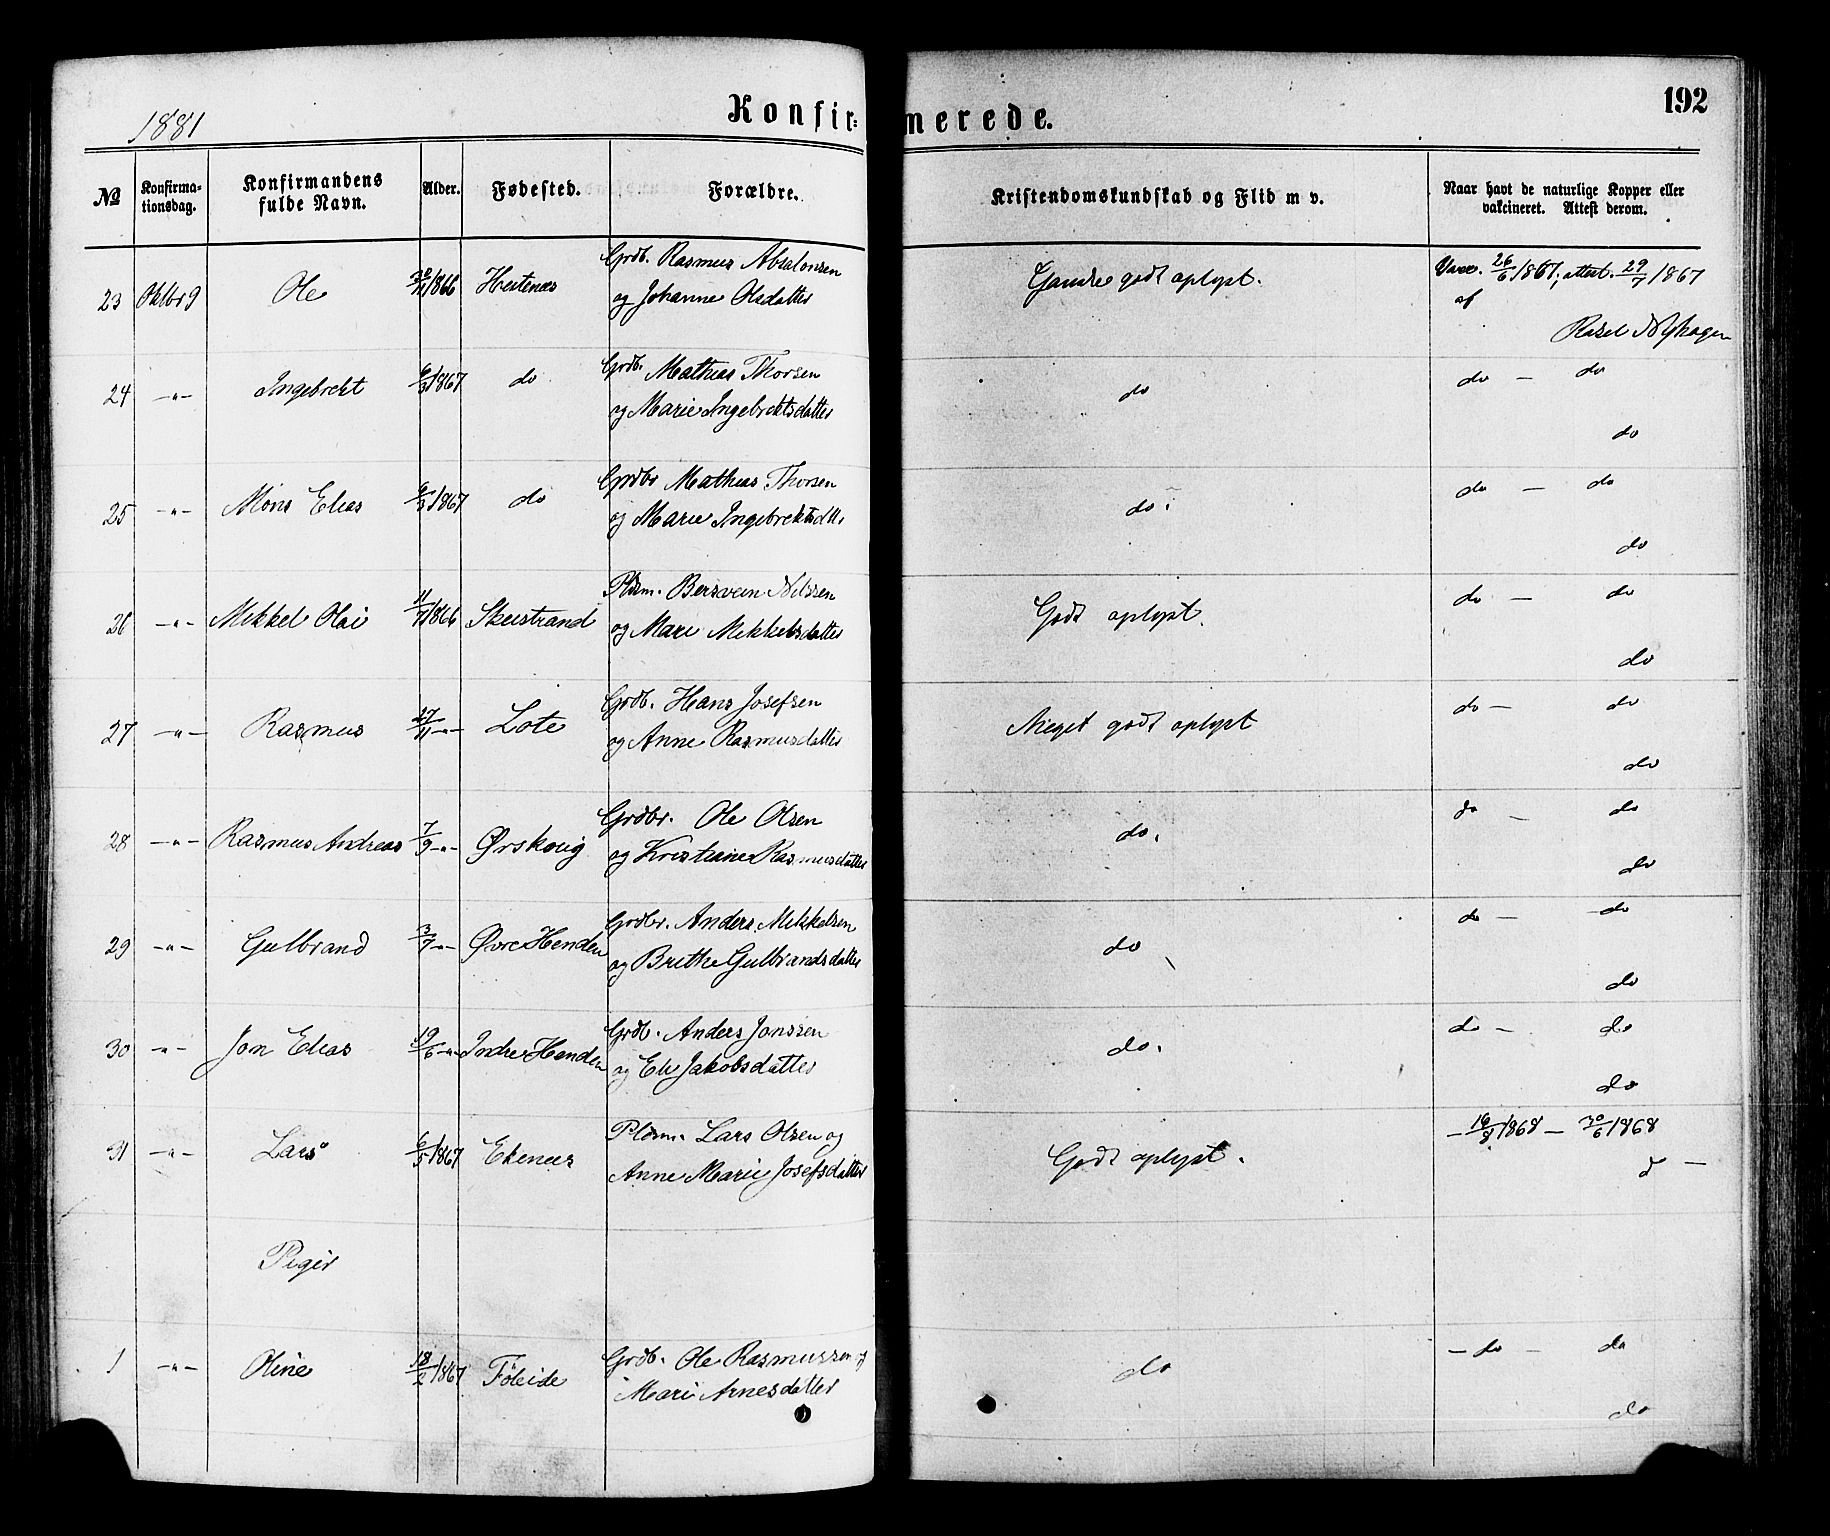 1881
Konfir=
merede.
192
No
Konfirma-
tionsdag.
Konfirmandens
fulde Navn.
Alder.
Fødested.
Forældre.
Kristendomskundskab og Flid m v.
Naar havt de naturlige Kopper eller
vakcineret. Attest derom.
23 Oktbr 9 Ole 1866 Hestenæs Grdb. Rasmus Absalonsen
og Johanne Olsdatter
Ganske godt oplyst.
Vacc. 26/6 1867, attest. 29/7 1867
af
Rasel Nyhagen
24 -"- Ingebrekt 6/3 1867 do Grdb. Mathias Thorsen
og Marie Ingebrektsdatter
do
do - do
do
25 -"- Mons Elias 6/3 1867 do Grdbr Mathias Thorsen
og Marie Ingebrektsdtr
do.
do - do
do
26 -"- Mikkel Olai 1866 Skeistrand Pldsm. Bersvein Nilssen
og Mari Mikkelsdatter
Godt oplyst.
do - do
do
27 -"- Rasmus 27/11 -"- Lote Grdb. Hans Josefsen
og Anne Rasmusdatter
Meget godt oplyst
do - do
do
28 -"- Rasmus Andreas 7/9 -"- Ørskoug Grdbr. Ole Olsen
og Kristiane Rasmusdatter
do.
do - do
do
29 -"- Gulbrand 3/7 -"- Øvre Henden Grdbr. Anders Mikkelsen
og Brithe Gulbrandsdatter
do
do - do
do
30 -"- Jon Elias 19/6 -"- Indre Henden Grdb. Anders Jonssen
og Eli Jakobsdatter
do.
do - do
do
31 -"- Lars 6/5 1867 Ekenes Pldsm. Lars Olsen og
Anne Marie Josefsdatter
Godt oplyst.
- 16/8 1868 - 30/6 1868
d -
Piger
1 -"- Oline 18/2 1867 Föleide Grdb. Ole Rasmussen og
Mari Arnesdatter
do
- do - do
do